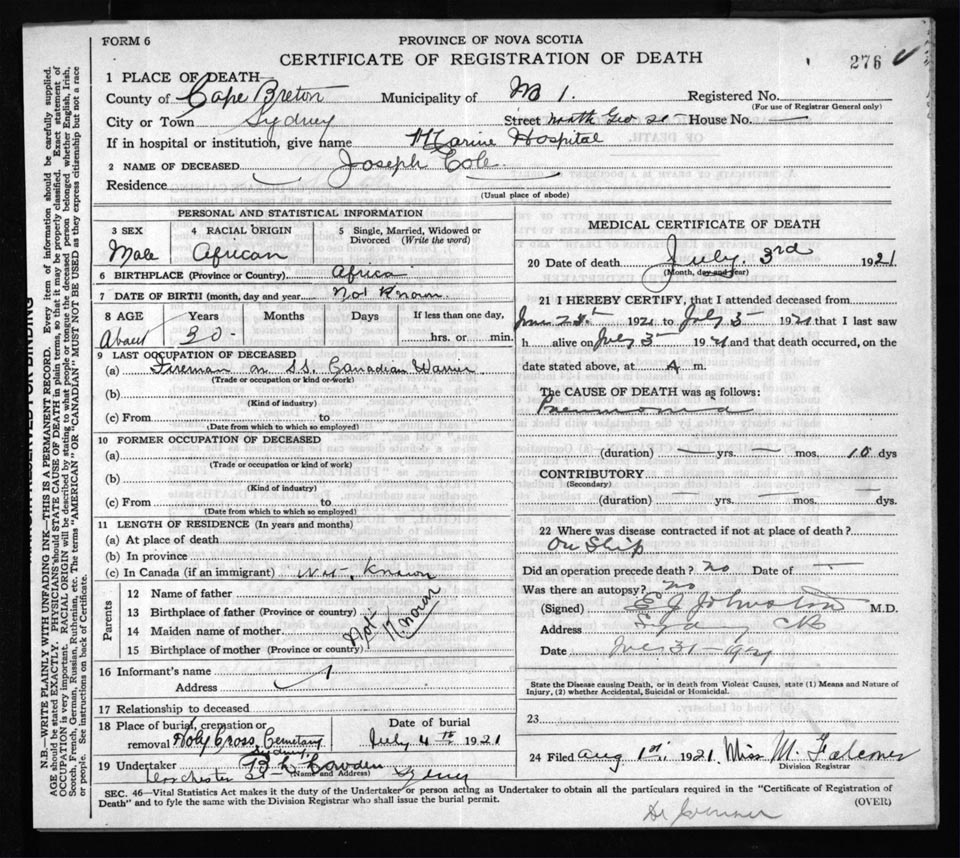 FORM 6
PROVINCE OF NOVA SCOTIA
CERTIFICATE OF REGISTRATION OF DEATH
276
1 PLACE OF DEATH
County of Cape Breton Municipality of No 1. Registered No.
(For use of Registrar General only)
City or Town Sydney Street North Geo St House No. —
If in hospital or institution, give name Marine Hospital
2 NAME OF DECEASED Joseph Cole
Residence
(Usual place of abode)
PERSONAL AND STATISTICAL INFORMATION
3 SEX 4 RACIAL ORIGIN 5 Single, Married, Widowed or
Divorced (Write the word)
Male African
6 BIRTHPLACE (Province or Country) Africa
7 DATE OF BIRTH (month, day and year Not Known
8 AGE Years Months Days If less than one day,
About 30- hrs. or min.
9 LAST OCCUPATION OF DECEASED
(a) Fireman on S.S. Canadian
(Trade or occupation or kind or work)
(b)
(Kind of industry)
(c) From to
(Date from which to which so employed)
10 FORMER OCCUPATION OF DECEASED
(a)
(Trade or occupation or kind of work)
(b)
(Kind of industry)
(c) From to
(Date from which to which so employed)
11 LENGTH OF RESIDENCE (In years and months)
(a) At place of death
(b) In province
(c) In Canada (if an immigrant) Not Known
Parents
12 Name of father
13 Birthplace of father (Province or country)
14 Maiden name of mother
15 Birthplace of mother (Province or country)
Not Known
16 Informant's name
Address
17 Relationship to deceased
18 Place of burial, cremation or
removal Holy Cross Cemetary
Sydney
Date of burial
July 4th 1921
19 Undertaker
(Name and Address)
Dorchester St Sydney
MEDICAL CERTIFICATE OF DEATH
20 Date of death July. 3rd 1921
(Month, day and year)
21 I HEREBY CERTIFY, that I attended deceased from
1921 to July 3 1921 that I last saw
h alive on July 3 1921 and that death occurred, on the
date stated above, at A m.
The CAUSE OF DEATH was as follows:
Pneumonia
(duration) — yrs. — mos. 10 dys
CONTRIBUTORY
(Secondary)
(duration) — yrs. — mos. — dys.
22 Where was disease contracted if not at place of death?
On Ship
Did an operation precede death? No Date of —
Was there an autopsy? No
(Signed) E J Johnston M.D.
Address Sydney CB
Date
State the Disease causing Death, or in death from Violent Causes, state (1) Means and Nature of
Injury, (2) whether Accidental, Suicidal or Homicidal.
23
24 Filed Aug 1st, 1921. Miss M. Falconer
Division Registrar
SEC. 46—Vital Statistics Act makes it the duty of the Undertaker or person acting as Undertaker to obtain all the particulars required in the "Certificate of Registration of
Death" and to fyle the same with the Division Registrar who shall issue the burial permit. (OVER)
N.B.—WRITE PLAINLY WITH UNFADING INK—THIS IS A PERMANENT RECORD. Every item of information should be carefully supplied.
AGE should be stated EXACTLY. PHYSICIANS should STATE CAUSE OF DEATH in plain terms, so that it may be properly classified. Exact statement of
OCCUPATION is very important. RACIAL ORIGIN will be described by stating to what people or tongue the deceased person belonged whether English, Irish,
Scotch, French, German, Russian, Ruthenian, etc. The terms "AMERICAN" OR "CANADIAN" MUST NOT BE USED as they express citizenship but not a race
or people. See instructions on back of Certificate.